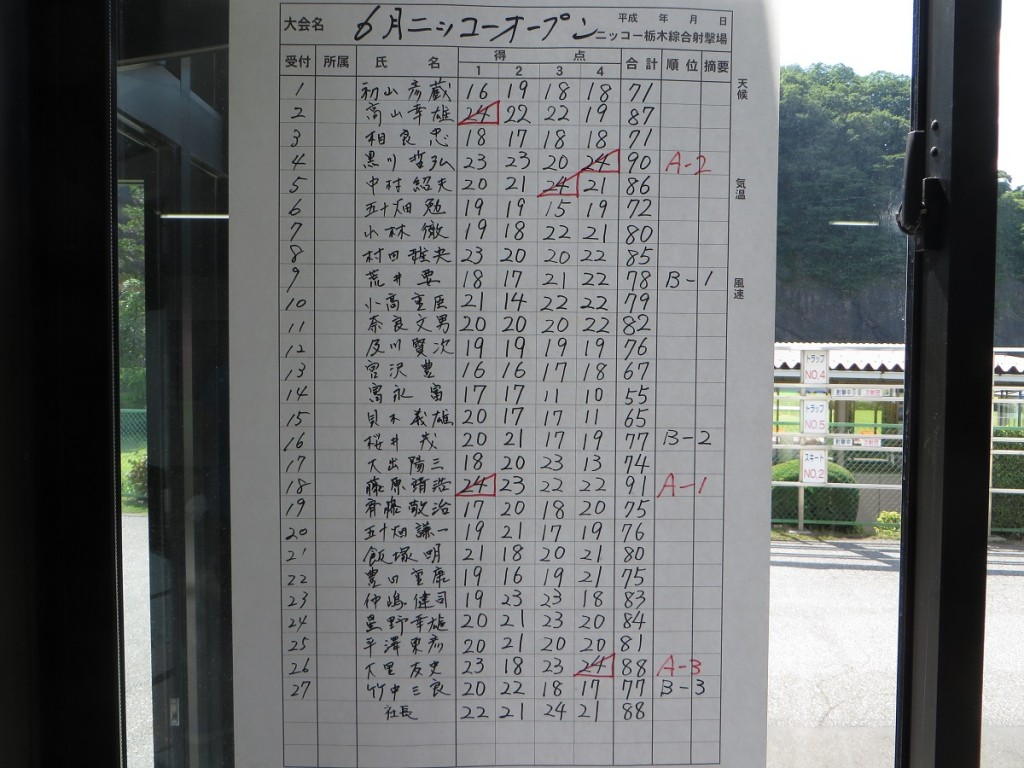 大会名 6月ニッコーオープン 平成 年 月 日
ニッコー栃木綜合射撃場
受付 所属 氏 名 得 点 合計 順位 摘要
1 2 3 4
1 初山彦蔵 16 19 18 18 71
2 高山幸雄 24 22 22 19 87
3 相良忠 18 17 18 18 71
4 黒川哲弘 23 23 20 24 90 A-2
5 中村紹夫 20 21 24 21 86
6 五十畑勉 19 19 15 19 72
7 小林徹 19 18 22 21 80
8 村田雅央 23 20 20 22 85
9 荒井要 18 17 21 22 78 B-1
10 小高重 21 14 22 22 79
11 奈良文男 20 20 20 22 82
12 及川賢次 19 19 19 19 76
13 宮沢豊 16 16 17 18 67
14 冨永富 17 17 11 10 55
15 貝木義雄 20 17 17 11 65
16 桜井茂 20 21 17 19 77 B-2
17 大出陽三 18 20 23 13 74
18 藤原靖浩 24 23 22 22 91 A-1
19 斉藤敏治 17 20 18 20 75
20 五十畑謙一 19 21 17 19 76
21 飯塚明 21 18 20 21 80
22 豊田重康 19 16 19 21 75
23 仲嶋健司 19 23 23 18 83
24 星野幸雄 20 21 23 20 84
25 平澤東彦 20 21 20 20 81
26 大里友史 23 18 23 24 88 A-3
27 竹中三良 20 22 18 17 77 B-3
社長 22 21 24 21 88
天候
気温
風速
トラップ
NO.4
トラップ
NO.5
スキート
NO.2